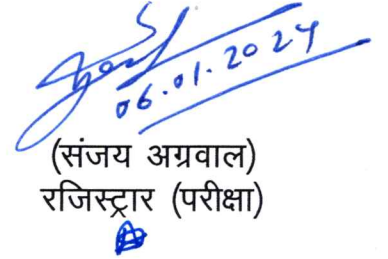 06.01.2024
(संजय अग्रवाल)
रजिस्ट्रार (परीक्षा)